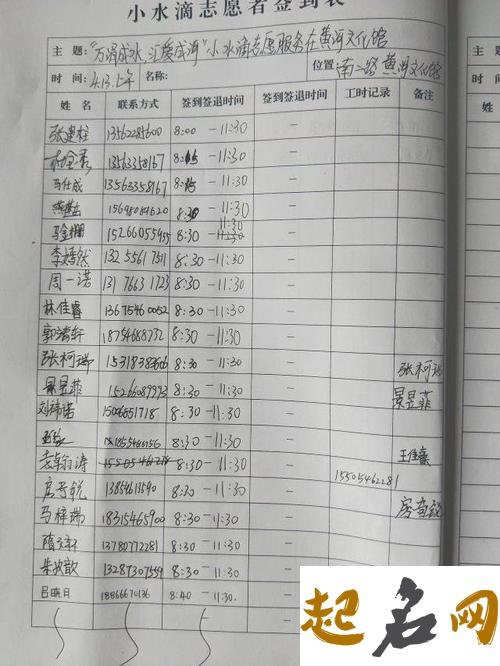 小水滴志愿者签到表
主题："万涓成水,汇爱成河"小水滴志愿服务在黄河文化馆
时间：4.13上午 名称： 位置：南二路黄河文化馆
姓名 联系方式 签到签退时间 签到签退时间 工时记录 备注
张建柱 13562285600 8:00-11:30 -
13563358167 8:15-11:30 -
马仕成 13563358167 8:15-11:30 -
8:30-11:30 -
15266055455 8:30-11:30 -
李嫣然 13255617511 8:30-11:30 -
周一诺 13176631723 8:30-11:30 -
林佳睿 13675460052 8:30-11:30 -
郭渚轩 18754688732 8:30-11:30 -
张柯瑞 15318383666 8:30-11:30 - 张柯瑞
景昱菲 15266089993 8:30-11:30 - 景昱菲
刘祎诺 15066651718 8:30-11:30 -
8:30-11:30 - 王佳豪
袁翰涛 8:30-11:30 - 15505462281
13854613590 8:30-11:30 -
马梓瑞 18315465900 8:30-11:30 -
隋子轩 13780772281 8:30-11:30 -
朱欣歆 13287307559 8:30-11:30 -
吕明日 8:40-11:30 -
起名网